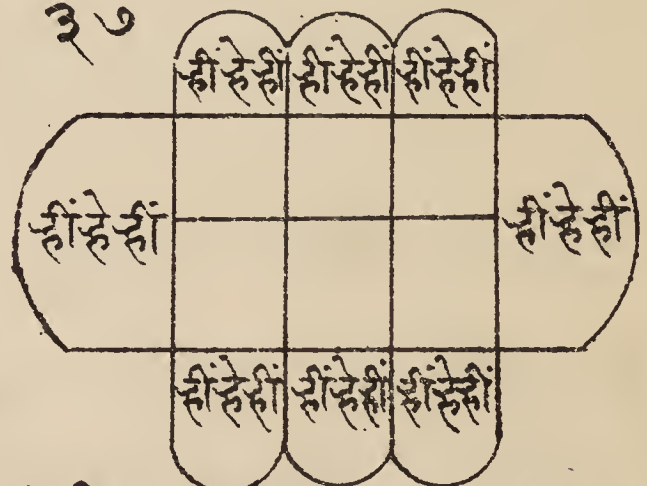 ३७
ह्रीं ह्रे ह्रीं ह्रीं ह्रे ह्रीं ह्रीं ह्रे ह्रीं
ह्रीं ह्रे ह्रीं ह्रीं ह्रे ह्रीं
ह्रीं ह्रे ह्रीं ह्रीं ह्रे ह्रीं ह्रीं ह्रे ह्रीं